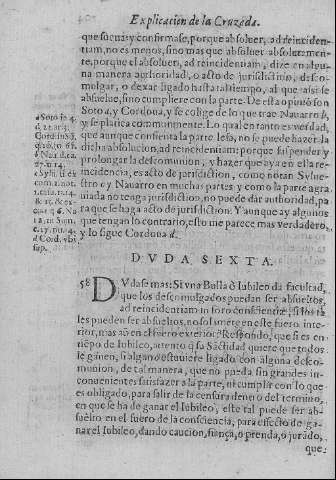 Explicacion de la Cruzada.
que suena y confirmase, porque absoluer, ad reinciden-
tiam, no es menos, sino mas que absoluer absolutamen-
te, porque el absoluer, ad reincidentiam, dize en algu-
na manera authoridad, o acto de jurisdiction, desco-
mulgar, o dexar ligado hasta tal tiempo, al que assi se
absuelue, sino cumpliere con la parte. De esta opinió son
Soto a, y Cordoua, y se colige de lo que trae Nauarro b,
y se platica communmente. Lo qual en tanto es verdad,
que aunque consienta la parte lesa, no se puede hazer la
dicha absolucion, ad reincidentiam: porque suspender y
prolongar la descomunion, y hazer que aya en ella re-
incidencia, es acto de jurisdiction, como notan Sylue-
stro c, y Nauarro en muchas partes y como la parte agra
uiada no tenga jurisdiction, no puede dar authoridad, pa
ra que se haga acto de jurisdiction. Y aunque ay algunos
que tengan lo contrario, esto me parece mas verdadero,
y lo sigue Cordoua d.
a Soto in 4.
d. 22. ar. 4.
Cord. in sū.
q. 10. 61.
b Nau. d. ca.
27. nu.
c Sylu.
d Cord. vbi
sup.
DVDA SEXTA.
58 Dudase mas: Si vna Bulla ò Iubileo da facultad,
que los descomulgados puedan ser absueltos,
ad reincidentiam in foro conscientiæ, si los ta
les pueden ser absueltos, no solamente en este fuero inte-
rior, mas aū en el fuero exterior. Respondo, que si es en
tiēpo de Iubileo, attento q̃ su Sāctidad quiere que todos
le ganen, si alguno estuuiere ligado con alguna desco-
munion, de tal manera, que no pueda sin grandes in-
conuenientes satisfazer a la parte, ni cumplir con lo que
es obligado, para salir de la censura dentro del termino,
en que se ha de ganar el Iubileo, este tal puede ser ab-
suelto en el fuero de la consciencia, para effecto de ga-
nar el Iubileo, dando caucion, fiança, o prenda, o jurādo,
que